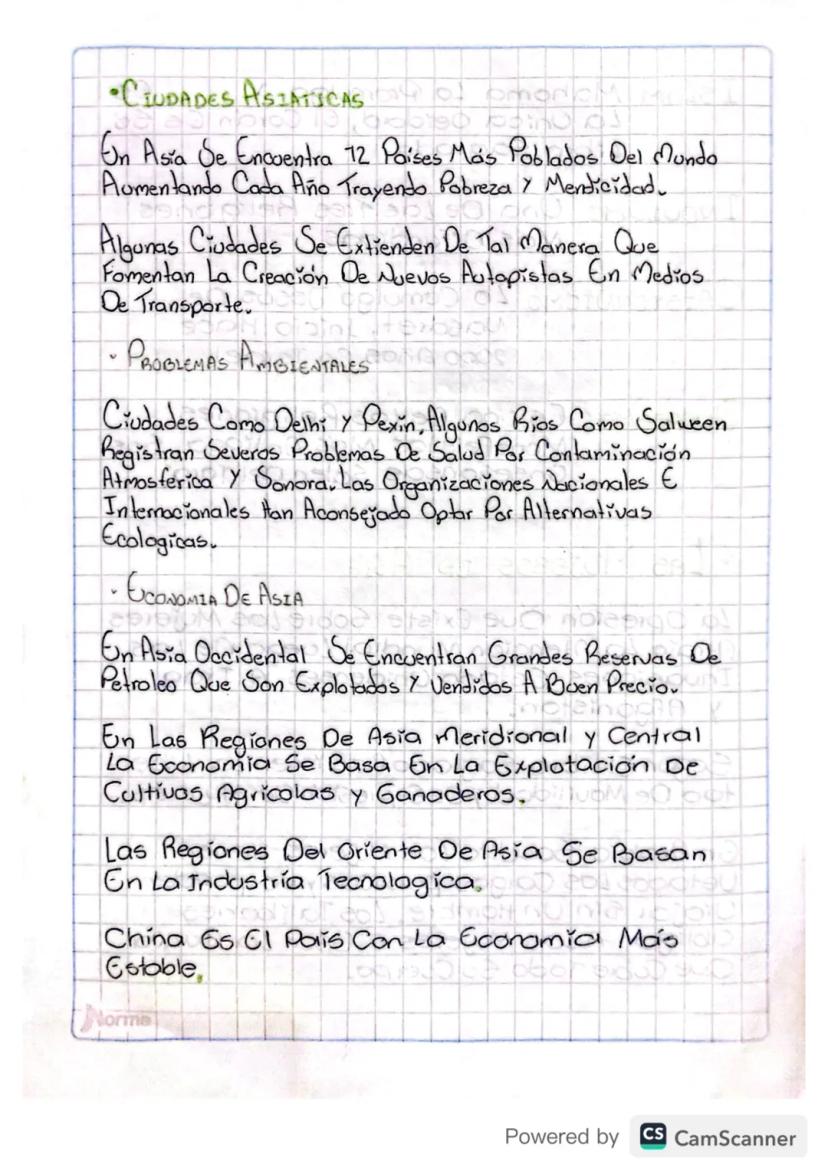 •CIUDADES ASIATICAS
En Asía Se Encuentra 12 Países Más Poblados Del Mundo
Aumentando Cada Año Trayendo Pobreza Y Mendicidad.
Algunas Ciudades Se Extienden De Tal Manera Que
Fomentan La Creación De Nuevos Autopistas En Medios
De Transporte.
• PROBLEMAS AMBIENTALES
Ciudades Como Delhi Y Pexin, Algunos Rios Como Salween
Registran Severos Problemas De Salud Por Contaminación
Atmosferica Y Sonora. Las Organizaciones Nacionales E
Internacionales Han Aconsejado Optar Por Alternativas
Ecologicas.
• ECONOMIA DE ASIA
En Asia Occidental Se Encuentran Grandes Reservas De
Petroleo Que Son Explotados Y Vendidos A Buen Precio.
En Las Regiones De Asia Meridional y Central
La Economía Se Basa En La Explotación De
Cultivos Agrícolas y Ganaderos.
Las Regiones Del Oriente De Asia Se Basan
En La Industria Tecnologica.
China Es El País Con La Economía Más
Estable.
Norma
Powered by CS CamScanner